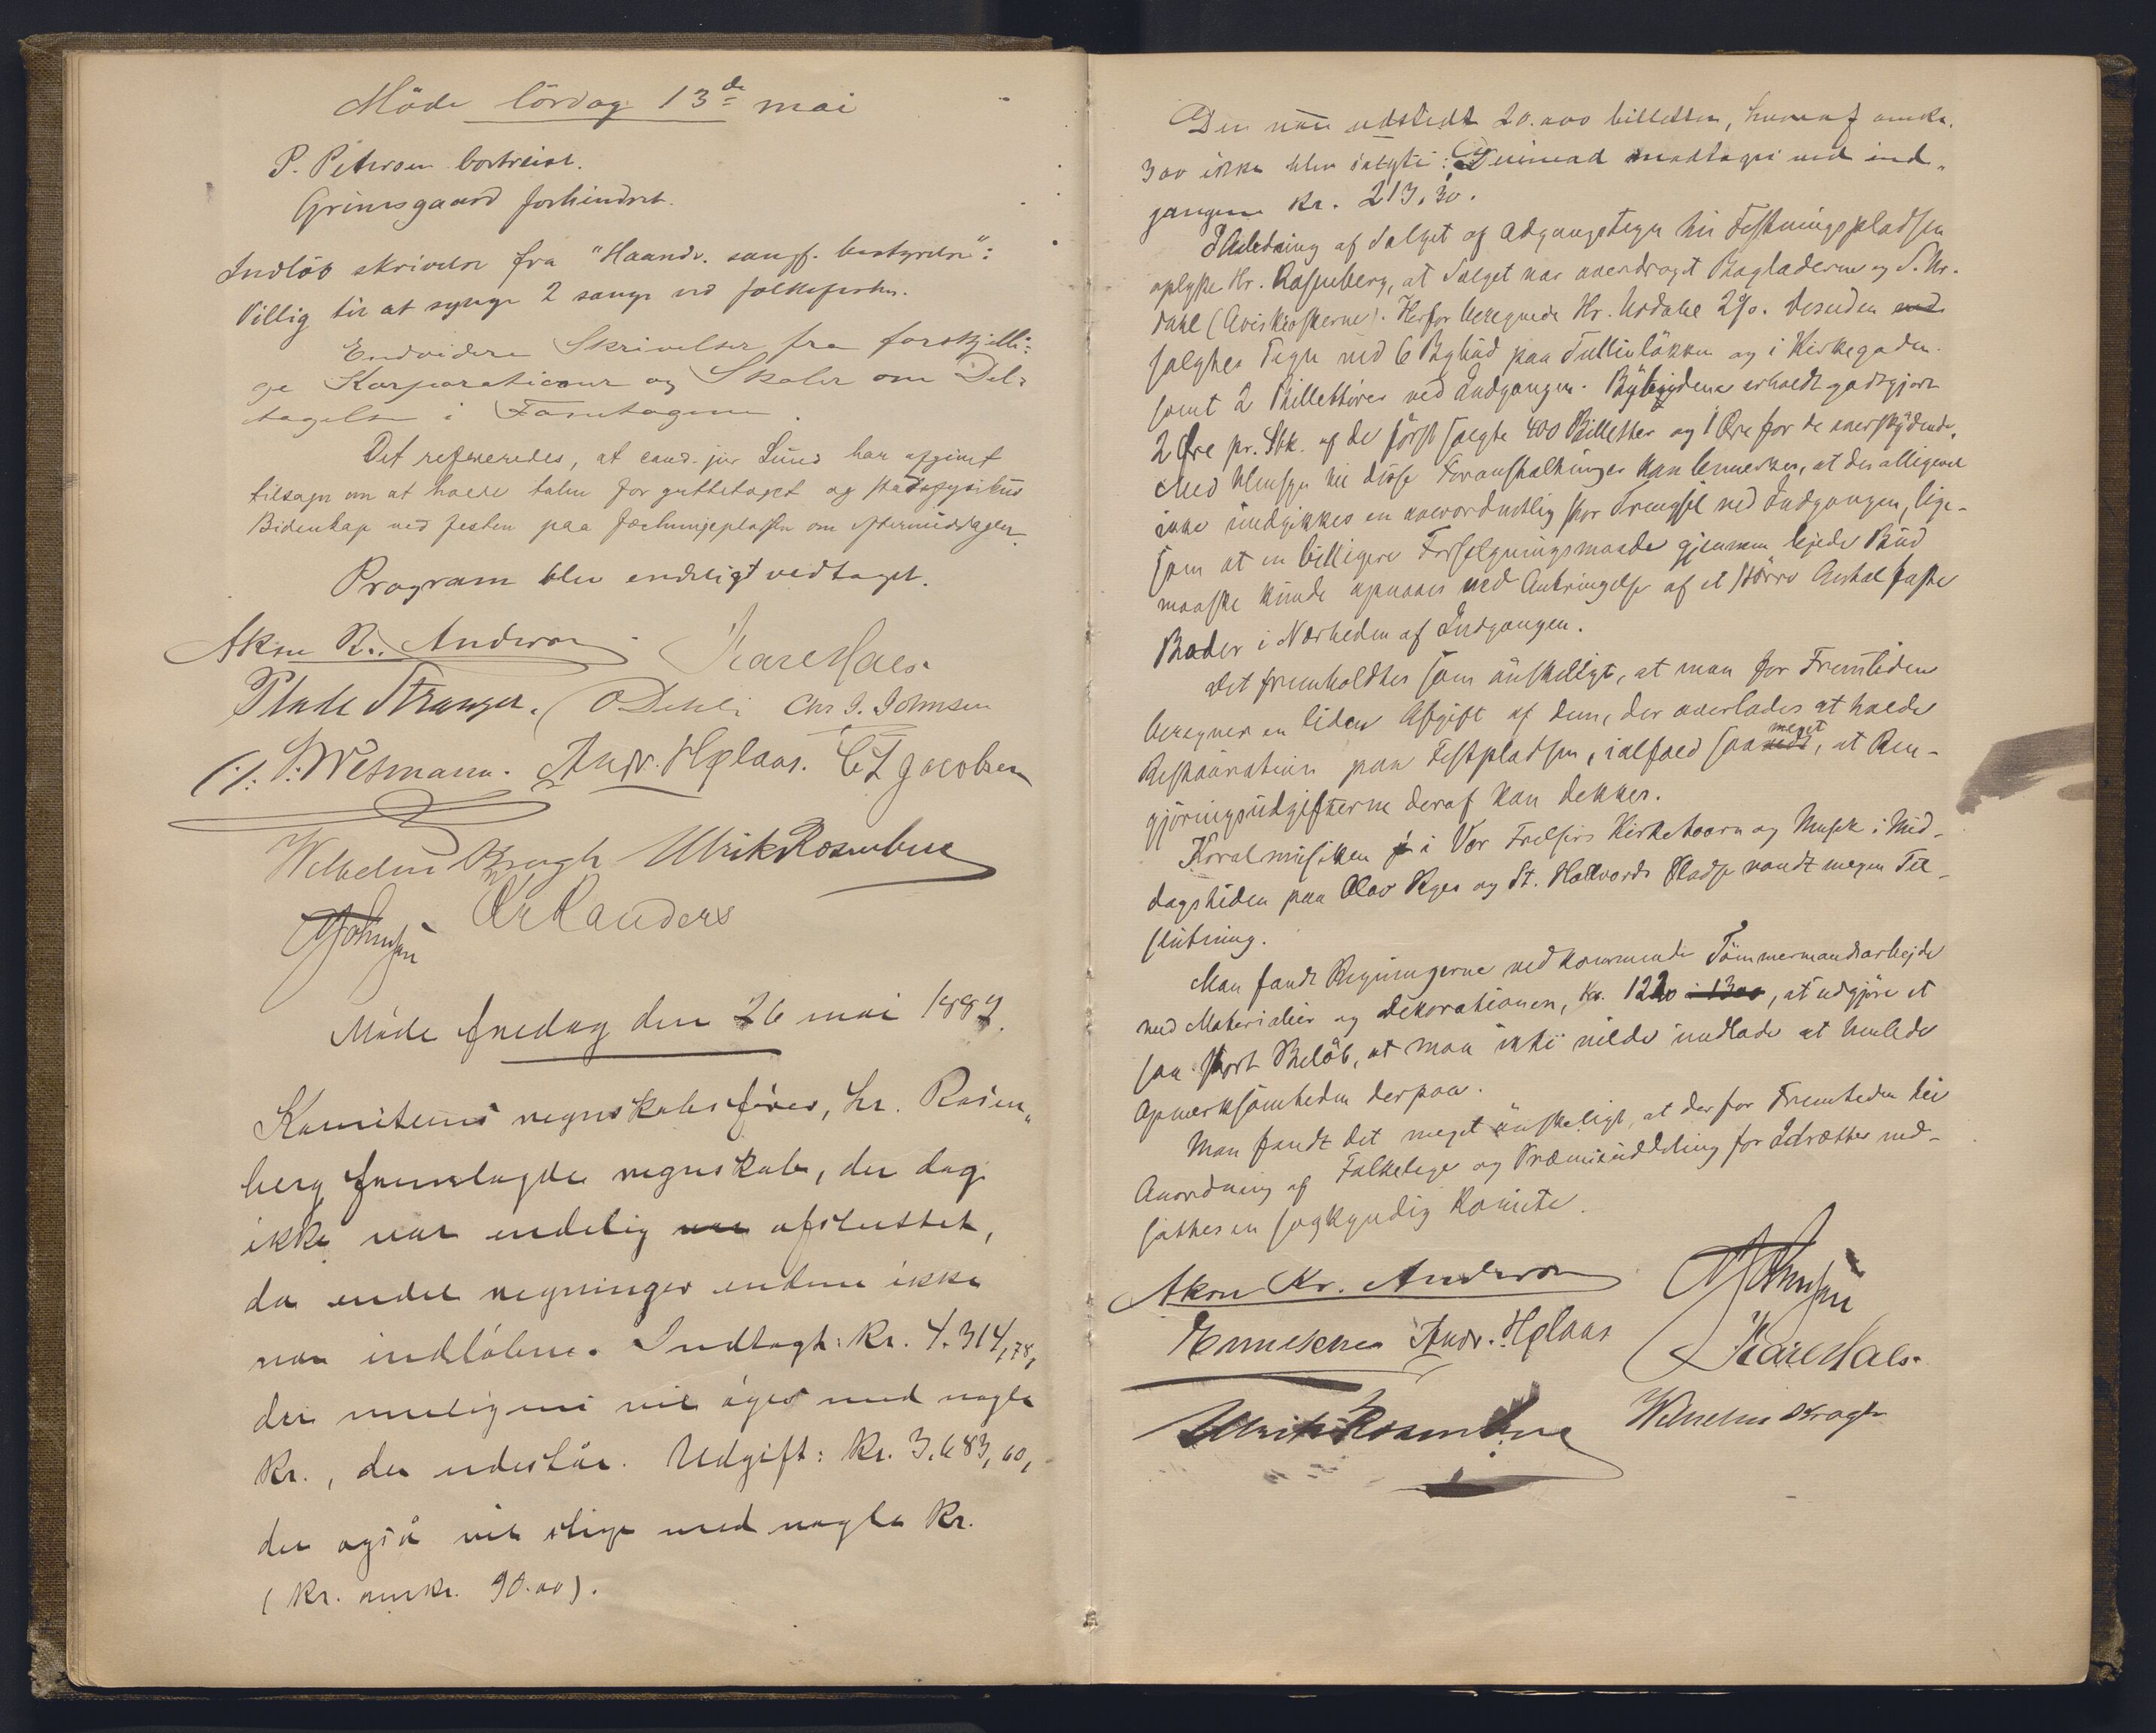 Möde lördag 13de mai
P. Petersen bortreist.
Grimsgaard forhindret.
Indløb skrivelse fra "Haandv. sangf. bestyrelse":
Villig til at synge 2 sange ved folkefesten.
Endvidere Skrivelser fra forskjelli-
ge Korporationer og Skoler om Del-
tagelse i Fanetogene.
Det refereredes, at cand. jur Lund har afgivet
tilsagn om at holde talen for guttetoget og stadsfysikus
Bidenkap ved festen paa Fæstningspladsen om eftermiddagen.
Program blev endeligt vedtaget.
Aksn R. Anderson Kare Hals.
Plade Stranger. O Dehli Chr J. Johnsen
S. Wesmann. Andr. Hølaas. C L Jacobsen
Wilhelm Krogh Ulrik Rosenberg
Johnsen Kr Randers
Möde fredag den 26 mai 1889.
Komiteens regnskabsfører, hr. Rosen-
berg fremlagde regnskab, der dog
ikke var endelig var afsluttet,
da endel regninger endnu ikke
var indløbne. Indtægt: Kr. 4.314,78,
der muligens vil øges med nogle
Kr., der udestår. Udgift: Kr. 3.683,60,
der også vil stige med nogle Kr.
(Kr. omkr. 90.00).
Der var udstedt 20.000 billetter, hvoraf omkr.
300 ikke blev solgte: Derimod modtoges ved ind-
gangene Kr. 213,30.
I Anledning af Salget af Adgangstegn til Festningspladsen
oplyste Hr. Rosenberg, at Salget var overdraget Bagladerne og S. Ur-
dahl (Aviskioskerne). Herfor beregnede Hr. Urdahl 2%. Desuden med
solgtes Tegn ved 6 Bybud paa Tullinløkken og i Kirkegaden
samt 2 Billettører ved Indgangen. Bybudene erholdt godtgjort
2 Øre pr. Stk. af de først solgte 400 Billetter og 1 Øre for de overskydende.
Med Hensyn til disse Foranstaltninger kan bemerkes, at der alligevel
ikke undgikkes en overordentlig stor Trengsel ved Indgangen, lige-
som at en billigere Forsølgningsmaade gjennem lejede Bud
maaske kunde opnaaes ved Anbringelse af et større Antal faste
Boder i Nærheden af Indgangen.
Det fremholdtes som ønskeligt, at man for Fremtiden
beregner en liden Afgift af dem, der overlades at holde
Restauration paa Festpladsen, ialfald saa vidt meget, at Ren-
gjøringsudgifterne deraf kan dekkes.
Koralmusiken i Vor Frelsers Kirketaarn og Musik i Mid-
dagstiden paa Olav Ryes og St. Halvards Pladse vandt megen Til-
slutning.
Man fandt Regningerne vedkommende Tømmermandsarbejde
med Materialier og Dekorationen, Kr. 1220 à 1300, at udgjøre et
saa stort Beløb, at man ikke vilde undlade at henlede
Opmerksomheden derpaa.
Man fandt det meget ønskeligt, at der for Fremtiden til
Anordning af Folkelege og Præmieuddeling for Idrætter ned-
sættes en sagkyndig Komite.
Aksn Kr. Anderson Johnsen
Andr. Hølaas Kare Hals.
Ulrik Rosenberg Wilhelm Krogh